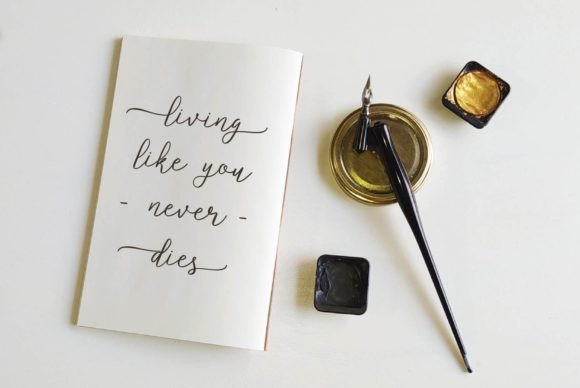 living
like you
- never -
dies